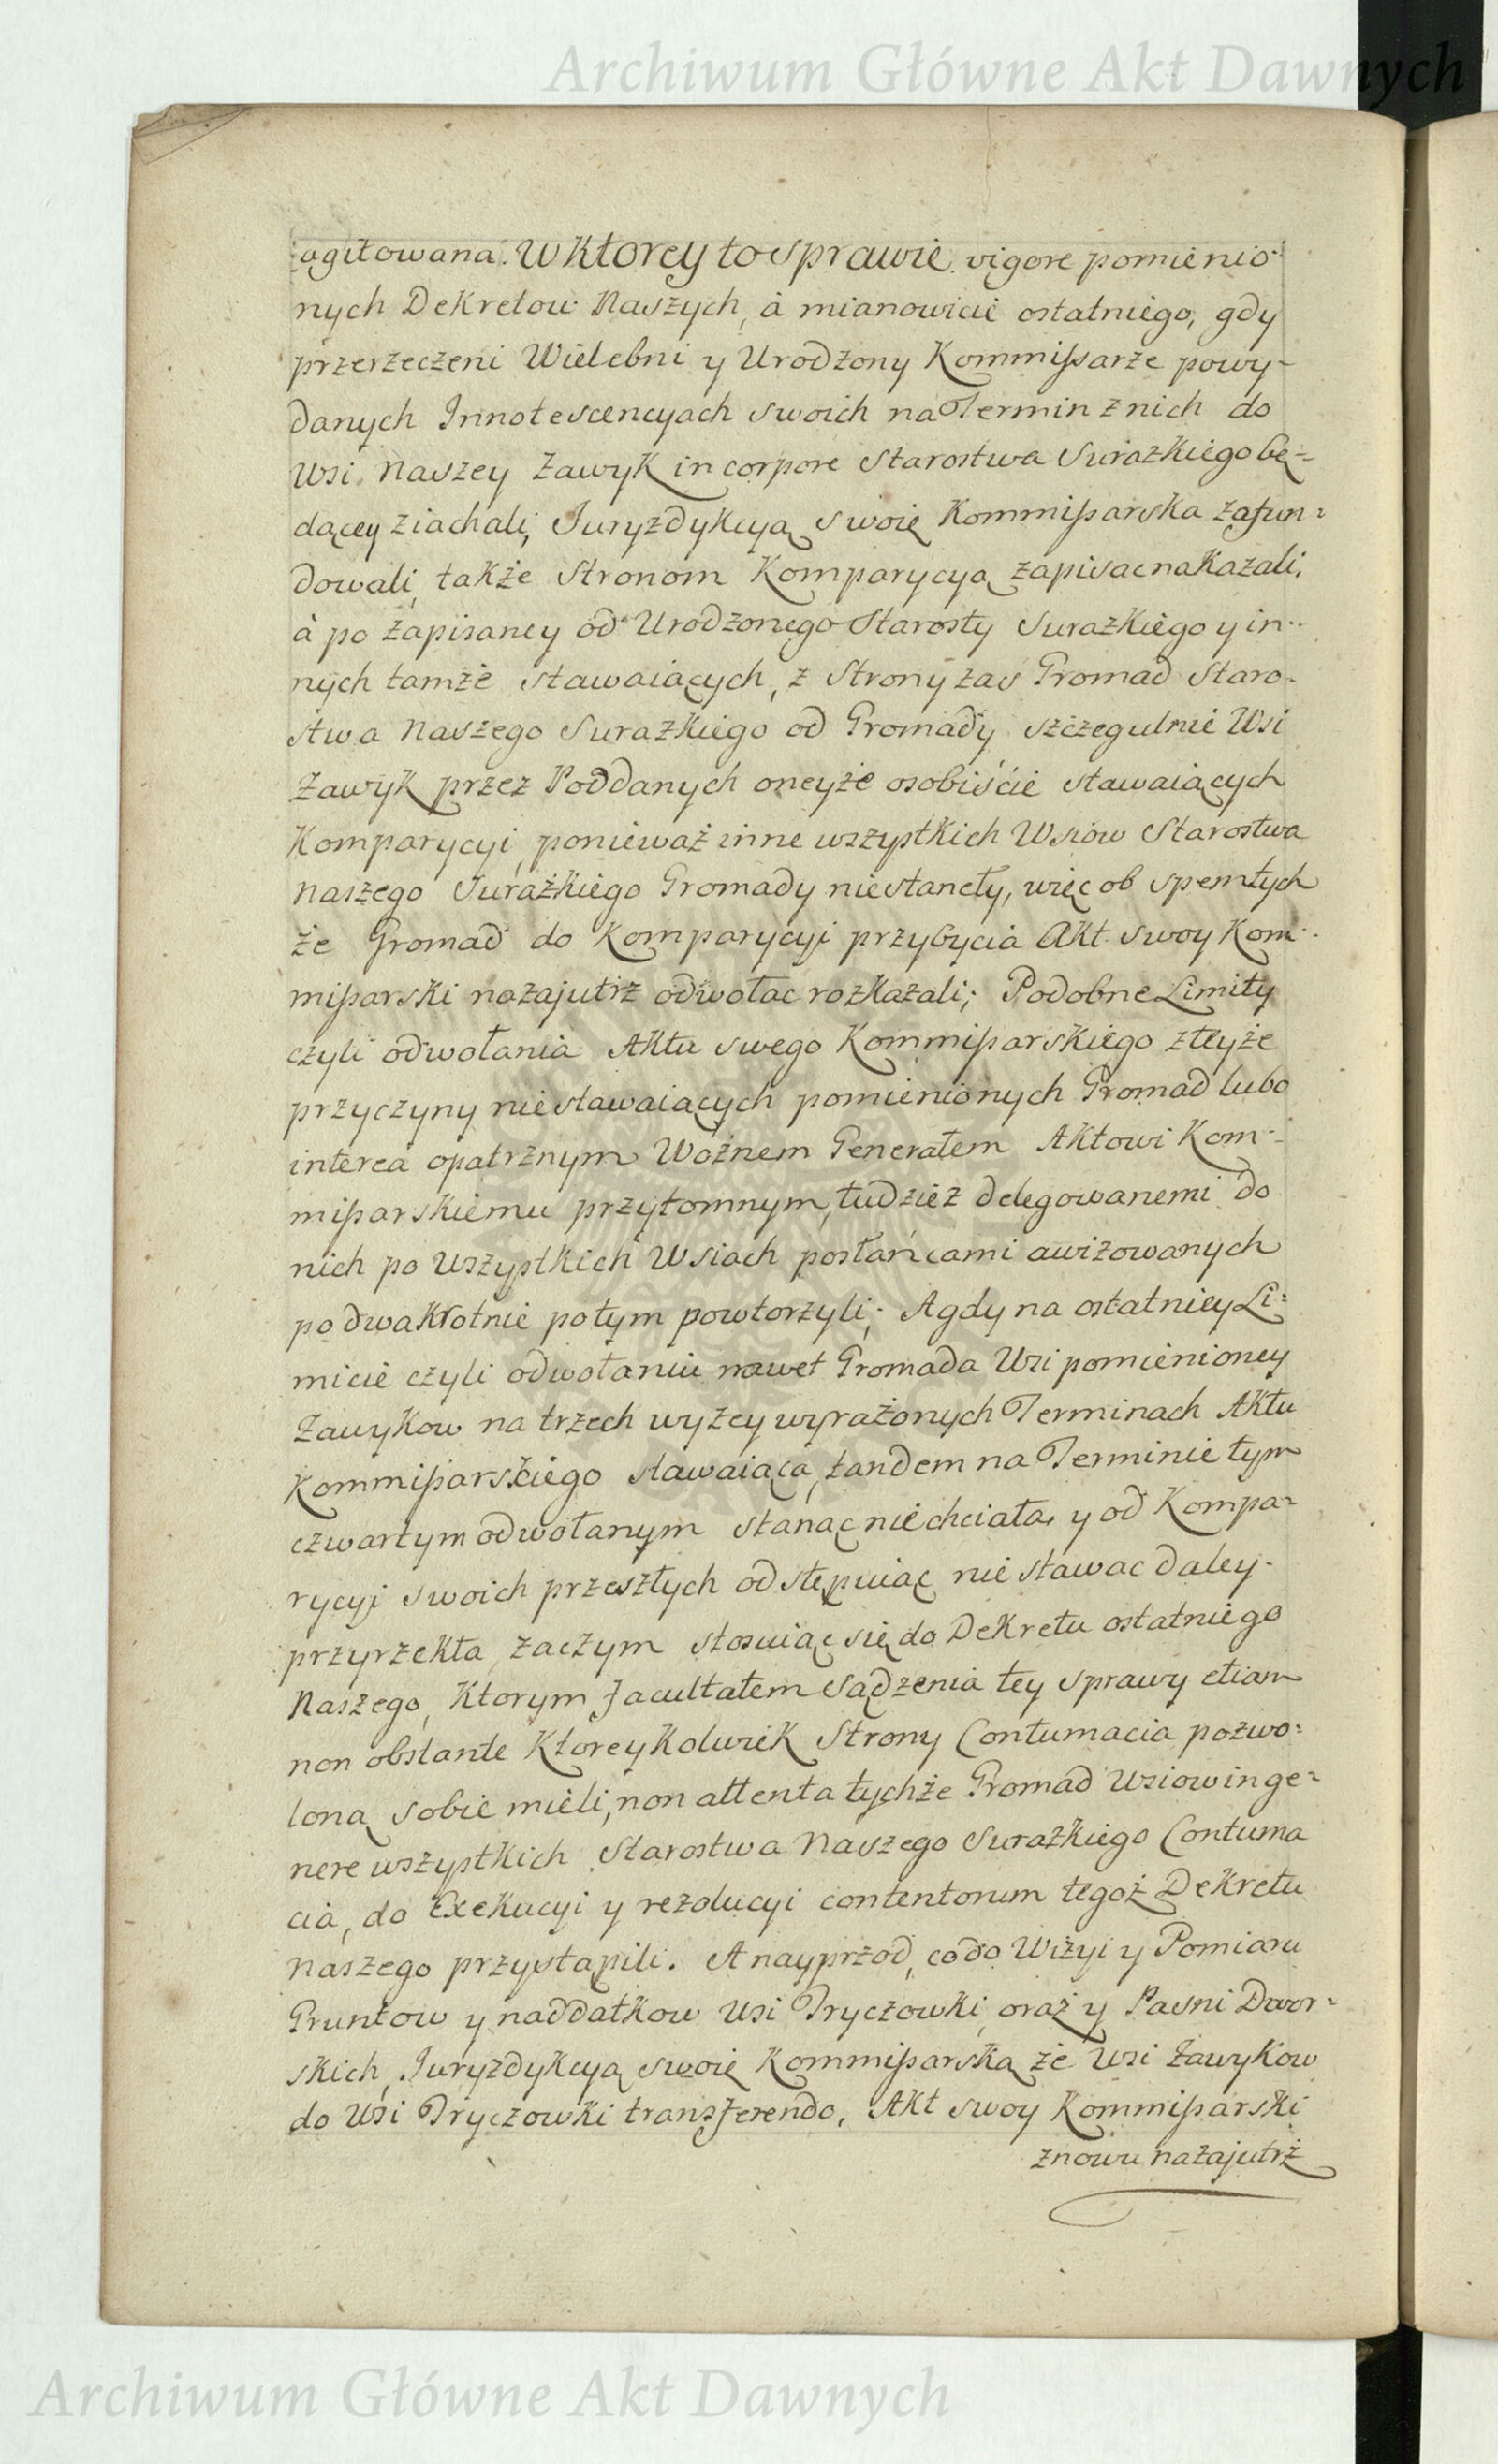 Archiwum Główne Akt Dawnych
agitowana. W Ktorey to Sprawie. vigore pomienio-
nych Dekretow Naszych, à mianowicie ostatniego, gdy
przerzeczeni Wielebni y Urodzony Kommißarze powy-
danych Innotescencyach swoich na Termin z nich do
Wsi. Naszey Zawyk in corpore Starostwa Surazkiego bę-
dącey ziachali, Juryzdykcyą swoię Kommißarska zafun-
dowali, także Stronom Komparycyą zapisac nakazali,
à po zapisaney od Urodzonego Starosty Surazkiego y in-
nych tamże stawaiących, z Strony zas Gromad Staro-
stwa Naszego Surazkiego od Gromady szczegulnie Wsi
Zawyk przez Poddanych oneyże osobiście stawaiących
Komparycyi, ponieważ inne wszystkich Wsiow Starostwa
Naszego Surażkiego Gromady niestanęły, więc ob spem tych
że Gromad do Komparycyi przybycia Akt swoy Kom-
mißarski nazajutrz odwołac rozkazali; Podobne Limity
czyli odwołania Aktu swego Kommißarskiego z teyże
przyczyny niestawaiących pomienionych Gromad lubo
interea opatrznym Woźnem Generałem Aktowi Kom-
mißarskiemu przytomnym, tudzież delegowanemi do
nich po wszystkich Wsiach posłańcami awizowanych
po dwakrotnie potym powtorzyli; A gdy na ostatniey Li-
micie czyli odwołaniu nawet Gromada Wsi pomienioney
Zawykow na trzech wyżey wyrażonych Terminach Aktu
Kommißarskiego stawaiąca, tandem na Terminie tym
czwartym odwołanym stanąc niechciała, y od Kompa-
rycyi swoich przeszłych odstępuiąc nie stawac daley
przyrzekła, zaczym stosuiąc się do Dekretu ostatniego
Naszego, Ktorym facultatem sądzenia tey sprawy etiam
non obstante Ktoreykolwiek Strony Contumacia pozwo-
loną sobie mieli, non attenta tychże Gromad Wsiow in ge-
nere wszystkich Starostwa Naszego Surazkiego Contuma
cia, do Exekucyi y rezolucyi contentorum tegoż Dekretu
Naszego przystąpili. A nayprzod, co do Wizyi y Pomiaru
Gruntow y naddatkow Wsi Tryczowki, oraz y Pasni Dwor-
skich, Juryzdykcyą swoię Kommißarską ze Wsi Zawykow
do Wsi Tryczowki transferendo, Akt swoy Kommißarski
znowu nazajutrz
Archiwum Główne Akt Dawnych